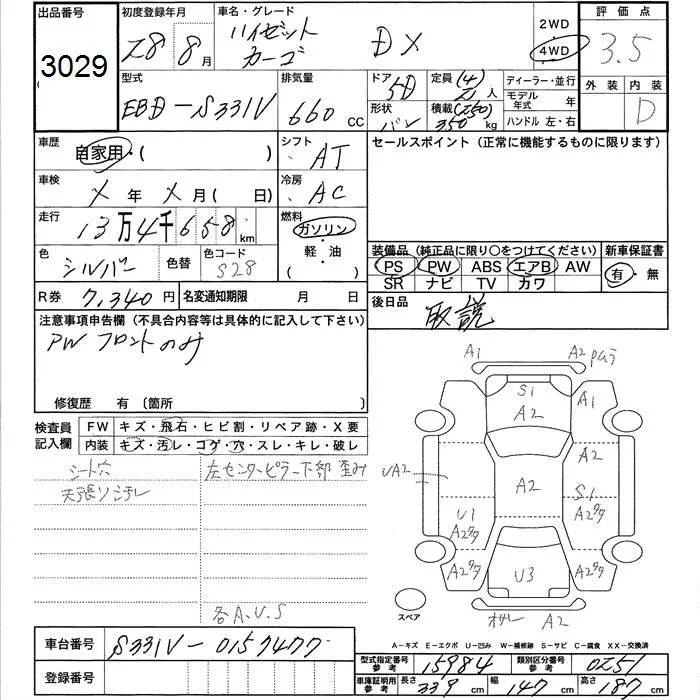 出品番号 初度登録年月 車名・グレード 2WD 評価点
3029 28年 8月 ハイゼットカーゴ DX 4WD 3.5
型式 排気量 ドア 5D 定員 (4) 2人 ディーラー・並行 外装 内装
EBD-S331V 660 CC 形状 バン 積載 (250) 350 kg モデル年式 年 D
ハンドル 左・右
車歴 自家用・( ) シフト AT セールスポイント (正常に機能するものに限ります)
車検 X年 X月 ( 日) 冷房 AC
走行 13万4千658km 燃料 ガソリン・軽・油 ( )
色 シルバー 色替 色コード S28
装備品 (純正品に限り○をつけてください) 新車保証書
PS PW ABS エアB AW 有・無
SR ナビ TV カワ
R券 7,340円 名変通知期限 月 日
後日品 取説
注意事項申告欄 (不具合内容等は具体的に記入して下さい)
PW フロントのみ
修復歴 有 (箇所
検査員記入欄 FW キズ・飛石・ヒビ割・リペア跡・X要
内装 キズ・汚レ・コゲ・穴・スレ・キレ・破レ
シート穴 左センターピラー下部歪み
天張りシミヨレ
各A.U.S
A1 A2
S1 A1
A2
A2
UA2 A2 S1
U1 A2タタ
A2タタ
A2タタ U3 A2タタ
スペア A2
A-キズ E-エクボ U-凹み W-補修跡 S-サビ C-腐食 XX-交換済
車台番号 S331V-0157477
登録番号
型式指定番号 参考 15984 類別区分番号 参考 0251
車庫証明用 参考 長さ 339 cm 幅 147 cm 高さ 187 cm